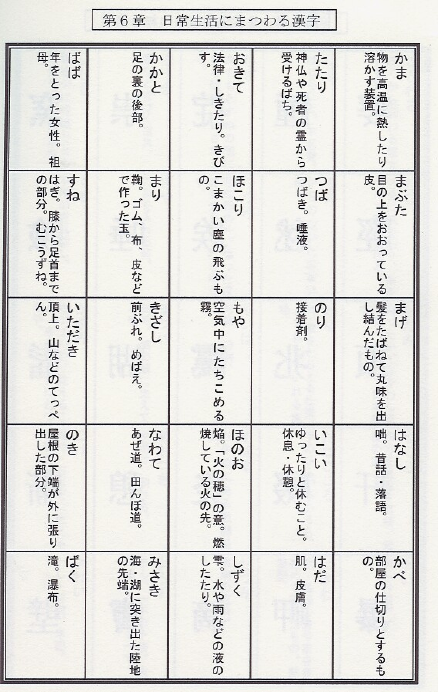 第６章　日常生活にまつわる漢字
かま
物を高温に熱したり
溶かす装置。
たたり
神仏や死者の霊から
受けるばち。
おきて
法律・しきたり。きび
す。
かかと
足の裏の後部。
ばば
年をとった女性。祖
母。
まぶた
目の上をおおっている
皮。
つば
つばき。唾液。
ほこり
こまかい塵の飛ぶも
の。
まり
鞠。ゴム、布、皮など
で作った玉。
すね
はぎ。膝から足首まで
の部分。むこうずね。
まげ
髪をたばねて丸味を出
し結んだもの。
のり
接着剤。
もや
空気中にたちこめる
霧。
きざし
前ぶれ。めばえ。
いただき
頂上。山などのてっぺ
ん。
はなし
咄。昔話・落語。
いこい
ゆったりと休むこと。
休息・休憩。
ほのお
焔。「火の穂」の意。燃
焼している火の先。
なわて
あぜ道。田んぼ道。
のき
屋根の下端が外に張り
出した部分。
かべ
部屋の仕切りとするも
の。
はだ
肌。皮膚。
しずく
雫。水や雨などの液の
したたり。
みさき
海・湖に突き出た陸地
の先端。
ばく
滝。瀑布。